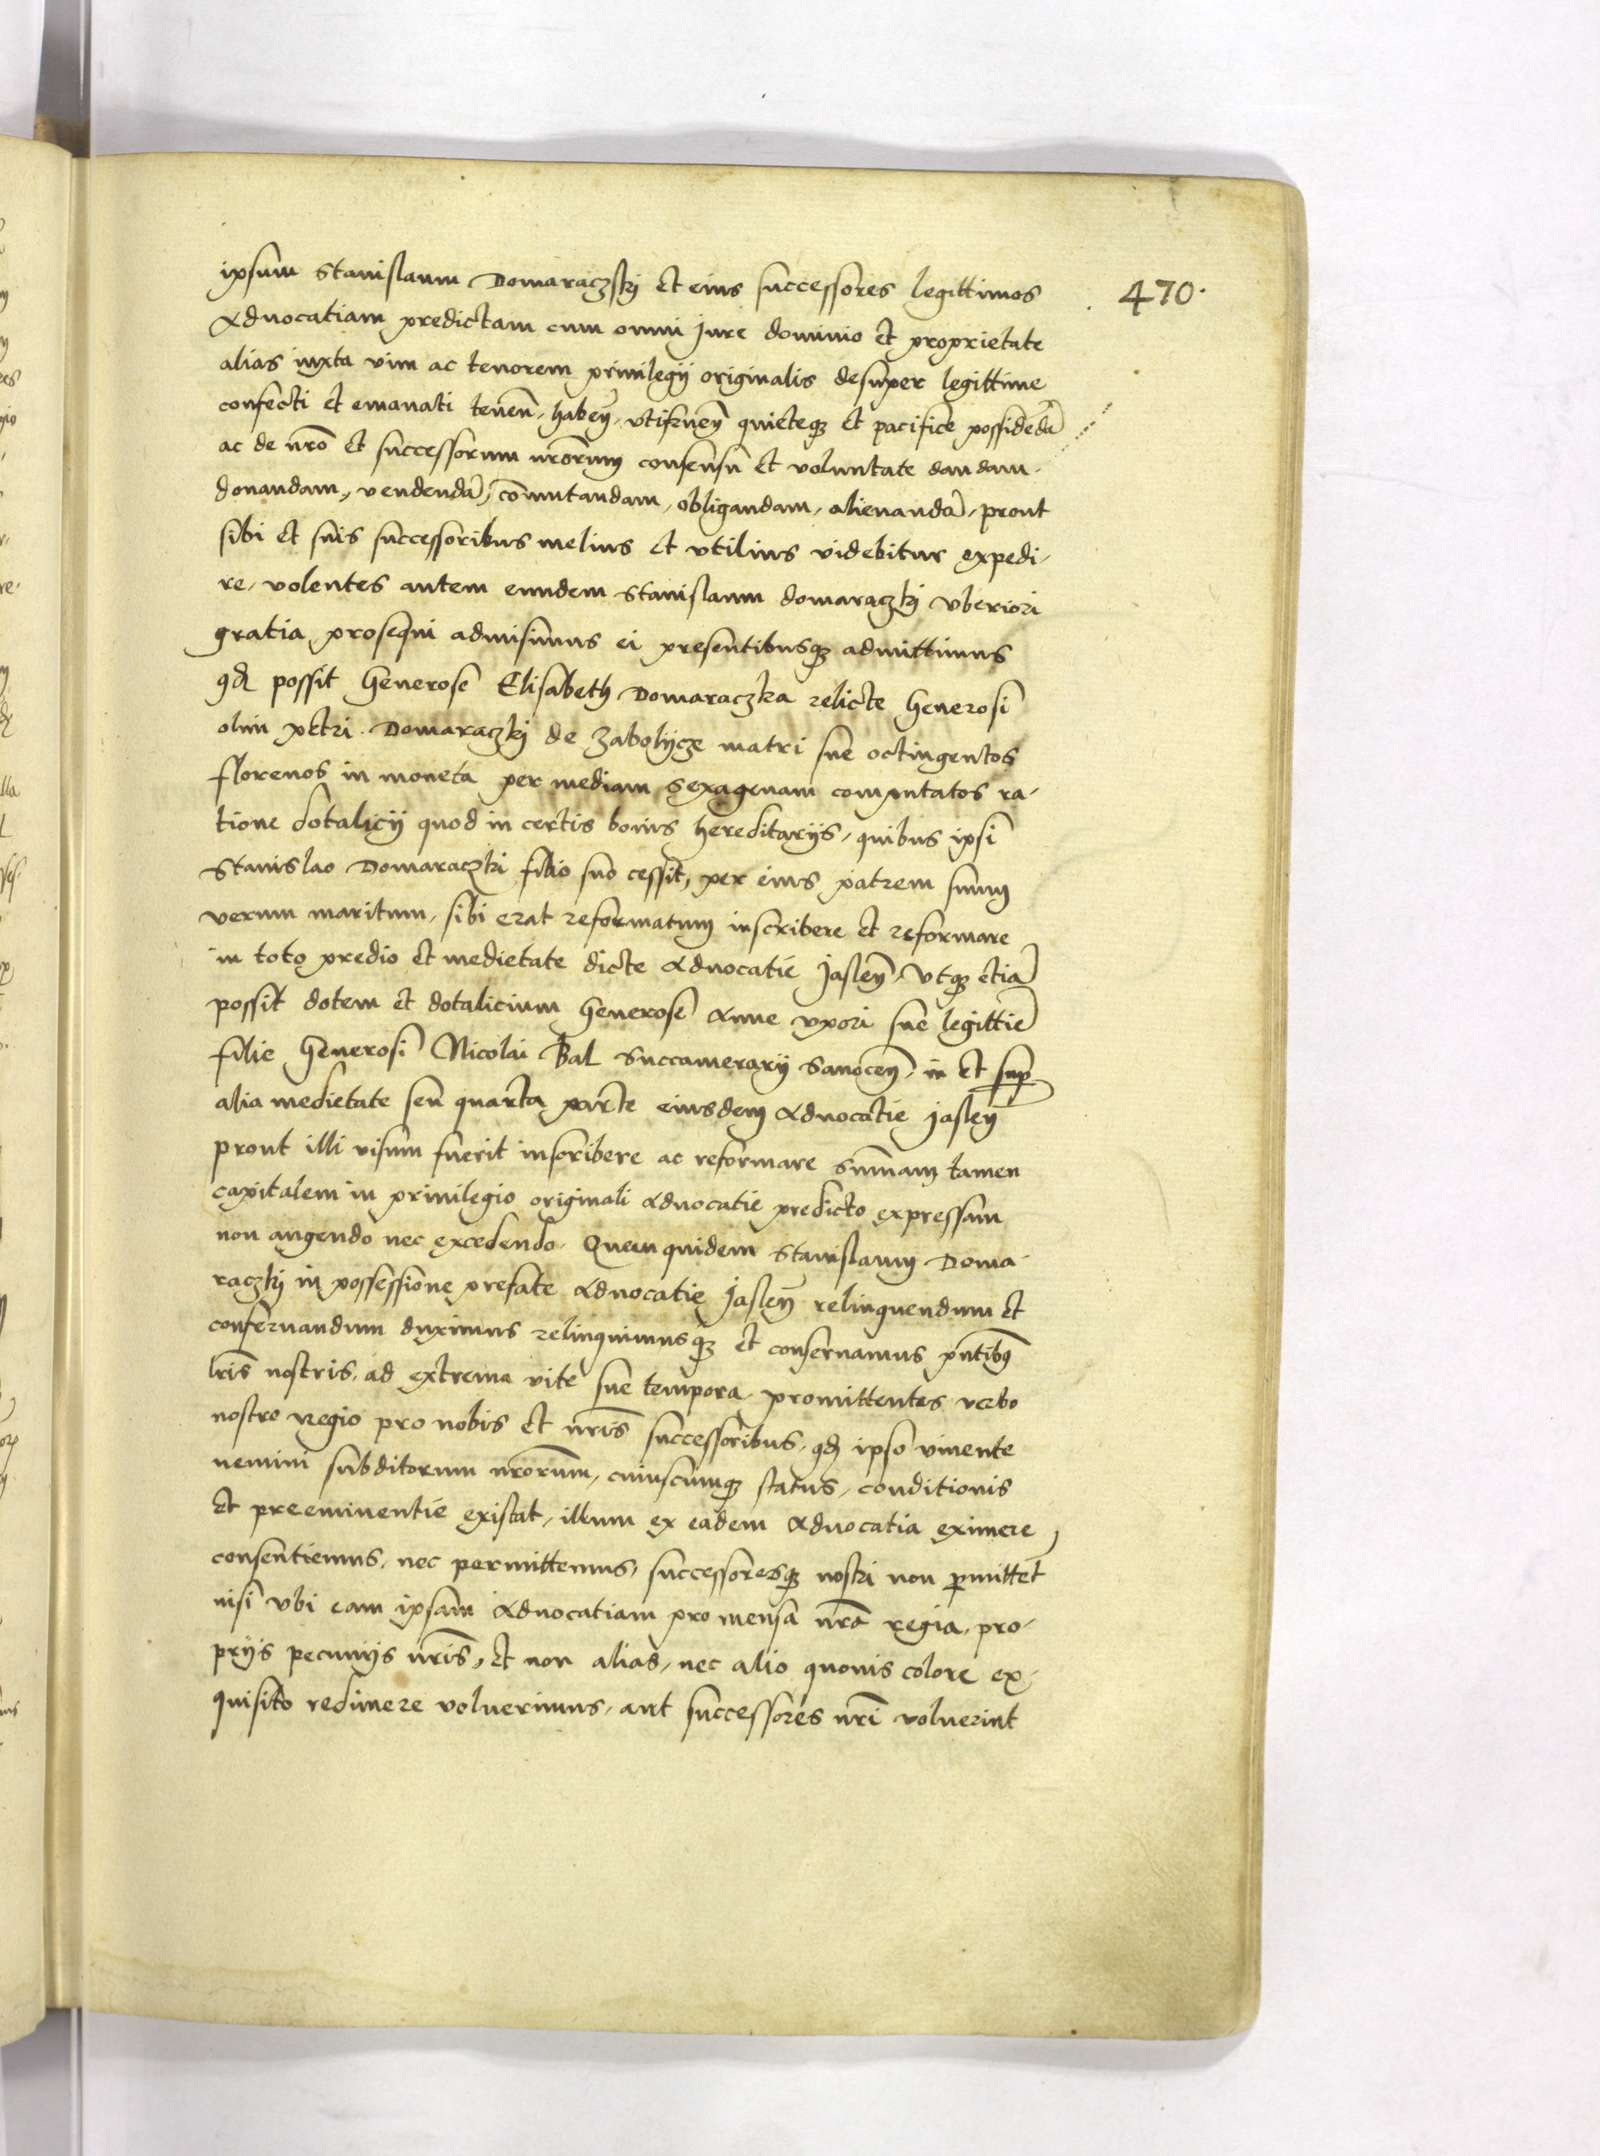 470.
ipsum Stanislaum Domaraczskj et eius successores legittimos
Aduocatiam predictam cum omni Jure dominio et proprietate
alias iuxta vim ac tenorem priuilegij originalis desuper legittime
confecti et emanati teneñ, habeñ, vtifrueñ quieteqз et pacifice possidedã
ac de nr̃o et successorum nr̃orum consensu et voluntate dandam,
donandam, vendendã, com̃utandam, obligandam, alienandã, prout
sibi et suis successoribus melius et vtilius videbitur expedi,
re, volentes autem eundem Stanislaum domaraczkj vberiori
gratia prosequi admisimus ei presentibusqз admittimus
qđ possit Generose Elisabeth Domaraczka relicte Generosi
olim petri Domaraczkj de Zabolycze matri sue octingentos
florenos in moneta per mediam sexagenam computatos ra,
tione dotalicij quod in certis bonis hereditarijs, quibus ipsi
Stanislao Domaraczki filio suo cessit, per eius patrem suum
verum maritum, sibi erat reformatum inscribere et reformare
in toto predio et medietate dicte Aduocatie Jasleñ, vtqз etiã
possit dotem et dotalicium Generose Anne vxori sue legittiẽ
filie Generosi Nicolai Bal Succamerarij Sanoceñ, in et sup
alia medietate seu quarta parte eiusdem Aduocatie Jasleñ
prout illi visum fuerit inscribere ac reformare Sum̃am tamen
capitalem in priuilegio originali Aduocatie predicto expressam
non augendo nec excedendo. Quem quidem Stanislaum Doma,
raczkj in possessione prefate Aduocatie Jasleñ relinquendum et
conseruandum duximus relinquimusqз et conseruamus pñtibus
lr̃is nostris, ad extrema vite sue tempora, promittentes verbo
nostro Regio pro nobis et nr̃is successoribus, qđ ipso viuente
nemini subditorum nr̃orum, cuiuscumqз status, conditionis
et preeminentie existat, illum ex eadem Aduocatia eximere
consentiemus, nec permittemus, successoresqз nostri non pmittet
nisi vbi eam ipsam Aduocatiam pro mensa nr̃a regia, pro,
prijs pecunijs nr̃is, et non alias, nec alio quouis colore ex,
quisito redimere voluerimus, aut successores nr̃i voluerint